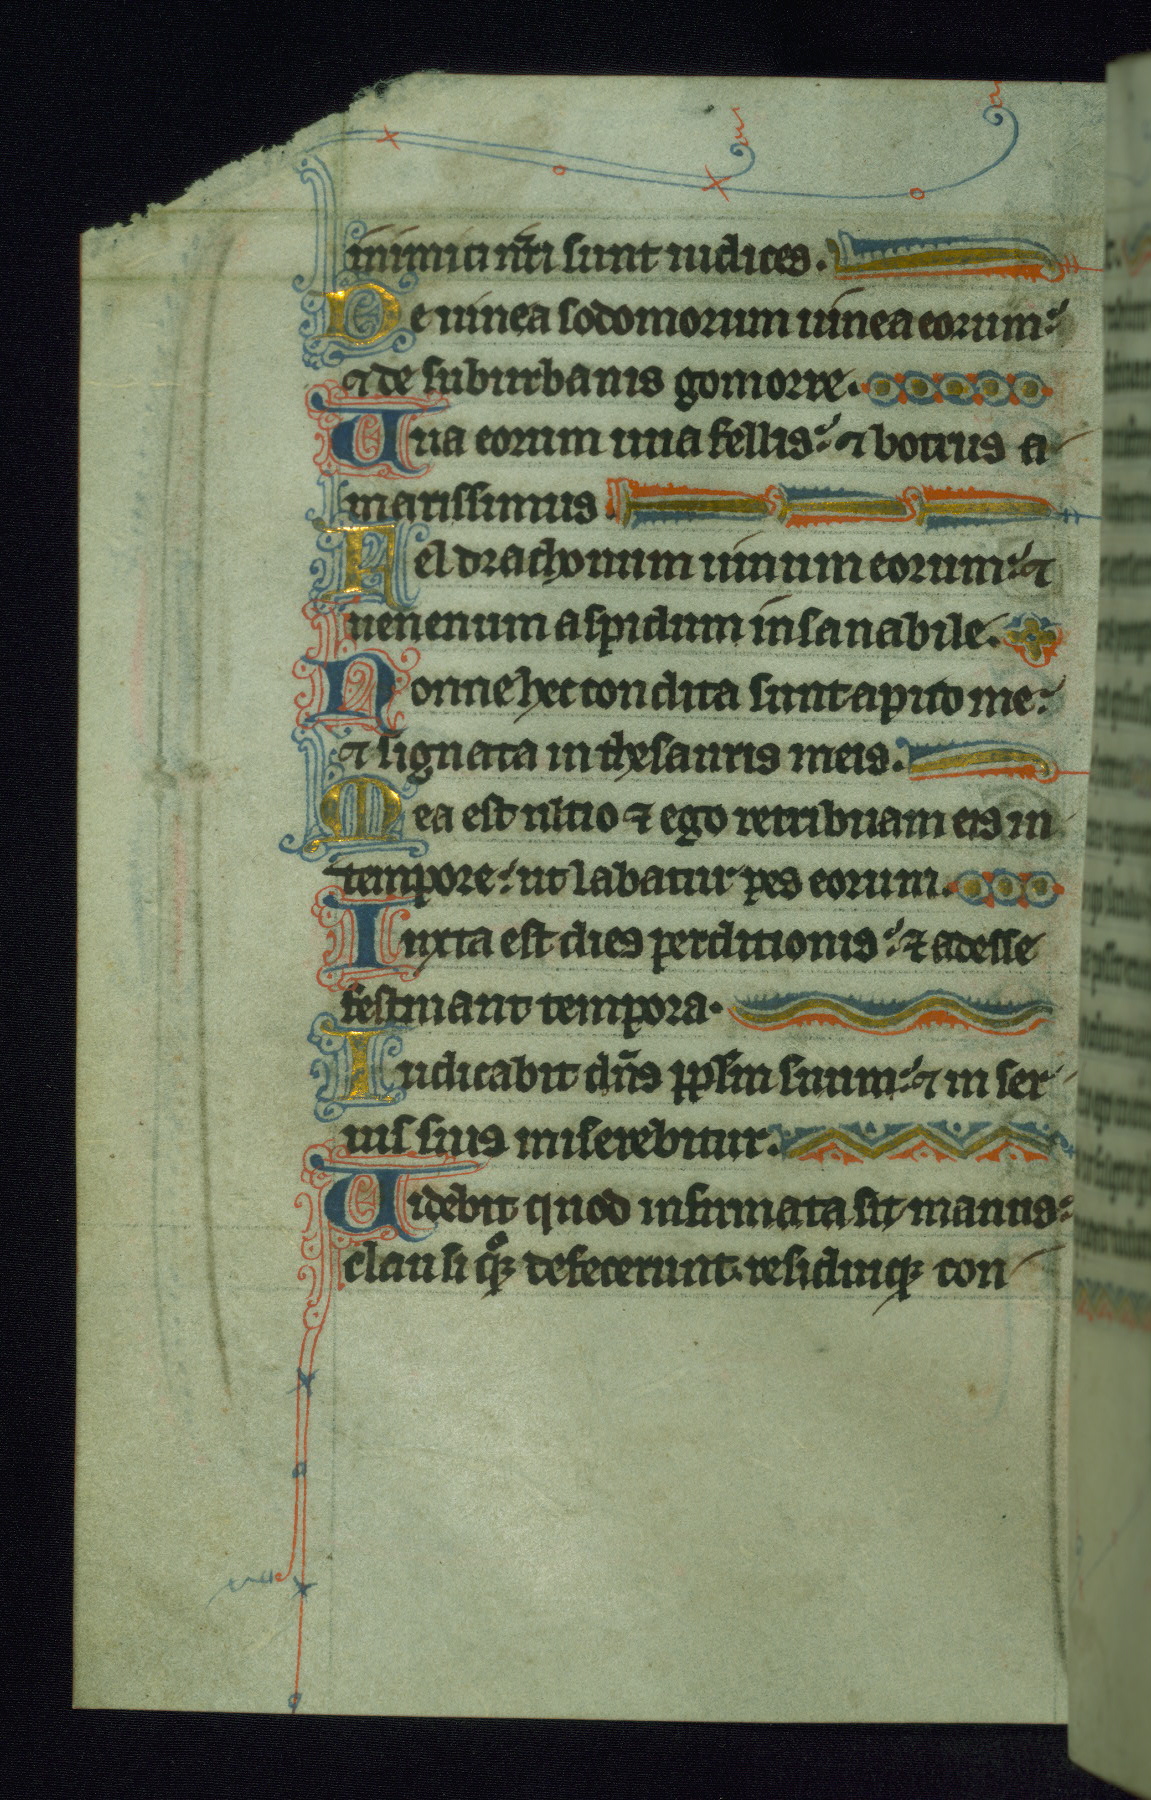 inimici nr̄i sunt iudices.
De uinea sodomorum uinea eorum:
⁊ de suburbanis gomorre.
Uua eorum uua fellis: ⁊ botrus a
marissimus.
Fel drachonum uinum eorum: ⁊
uenenum aspidum insanabile.
Nonne hec condita sunt aput me:
⁊ signata in thesauris meis.
Mea est ultio ⁊ ego retribuam eis in
tempore: ut labatur pes eorum.
Iuxta est dies perditionis: ⁊ adesse
festinant tempora.
Iudicabit dn̄s pplm̄ suum: ⁊ in ser
uis suis miserebitur.
Uidebit quod infirmata sit manus:
clausi qͦꝫ defecerunt. residuiqꝫ con